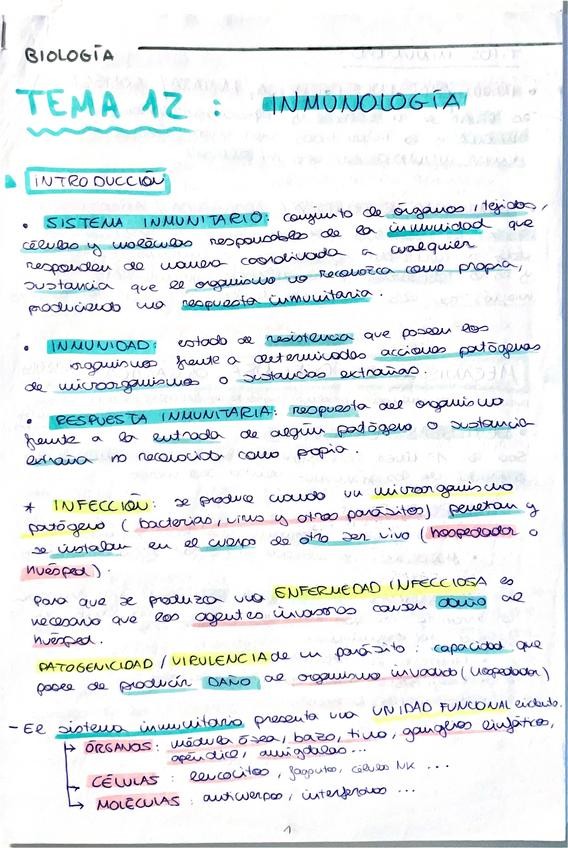 BIOLOGÍA
TEMA 12 : INMUNOLOGÍA
INTRODUCCIÓN
• SISTEMA INMUNITARIO: conjunto de órganos, tejidos,
células y moléculas responsables de la inmunidad que
responden de manera coordinada a cualquier
sustancia que el organismo no reconozca como propia,
produciendo una respuesta inmunitaria.
• INMUNIDAD: estado de resistencia que poseen los
organismos frente a determinadas acciones patógenas
de microorganismos o sustancias extrañas.
• RESPUESTA INMUNITARIA: respuesta del organismo
frente a la entrada de algún patógeno o sustancia
extraña no reconocida como propia.
* INFECCIÓN: se produce cuando un microorganismo
patógeno (bacterias, virus y otros parásitos) penetran y
se instalan en el cuerpo de otro ser vivo (hospedador o
huésped).
Para que se produzca una ENFERMEDAD INFECCIOSA es
necesario que los agentes invasores causen daño al
huésped.
PATOGENICIDAD / VIRULENCIA de un parásito: capacidad que
posee de producir DAÑO al organismo invadido (hospedador)
- El sistema inmunitario presenta una UNIDAD FUNCIONAL
→ ÓRGANOS: médula ósea, bazo, timo, ganglios linfáticos,
apéndice, amígdalas ...
→ CÉLULAS: leucocitos, fagocitos, células NK ...
→ MOLÉCULAS: anticuerpos, interferones ...
1